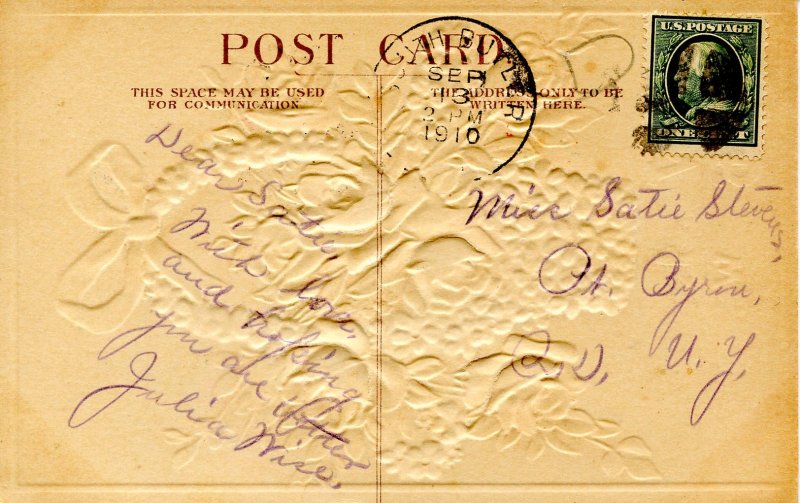 POST CARD
THIS SPACE MAY BE USED
FOR COMMUNICATION.
THE ADDRESS ONLY TO BE
WRITTEN HERE.
TH BUTLER
SEP
13
2 PM
1910
U.S. POSTAGE
ONE CENT
Dear Satie,
With love,
and hoping
you are better
Julia Wise.
Miss Satie Stevens,
Pt. Byron,
N. Y.